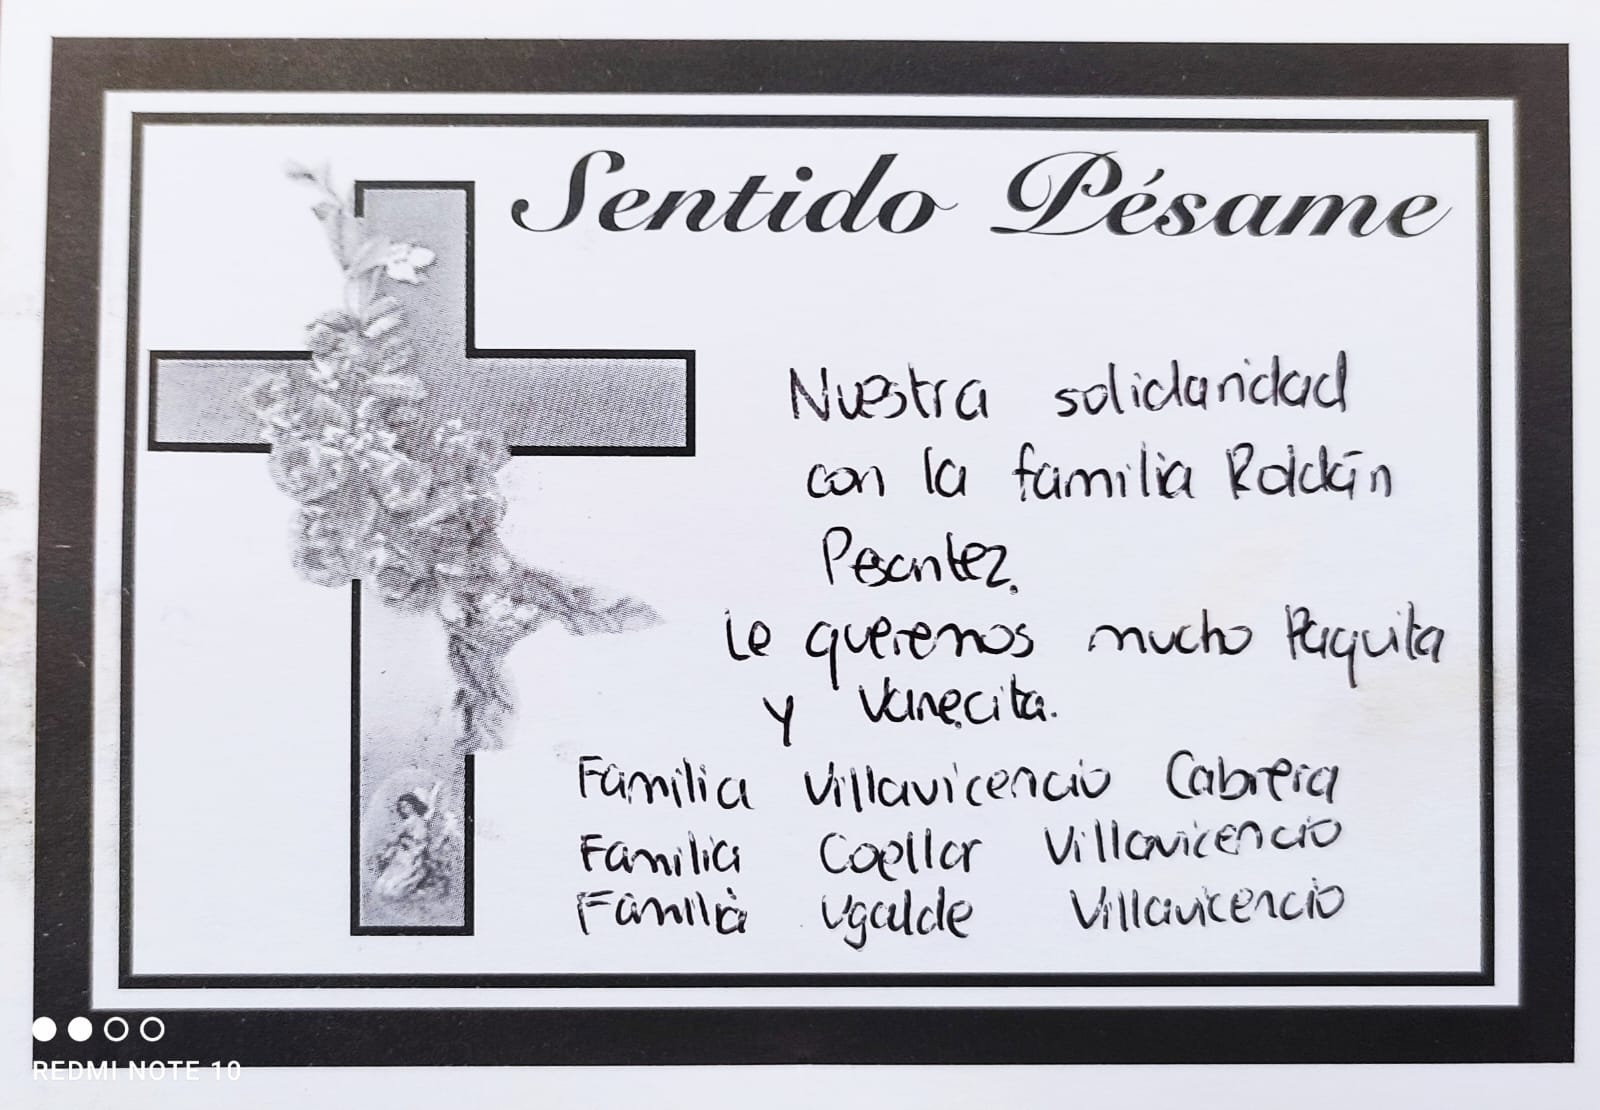 Sentido Pésame
Nuestra solidaridad
con la familia Roldán
Pesantez.
Le queremos mucho Paquita
y Vanecita.
Familia Villavicencio Cabrera
Familia Coellar Villavicencio
Familia Ugalde Villavicencio
REDMI NOTE 10